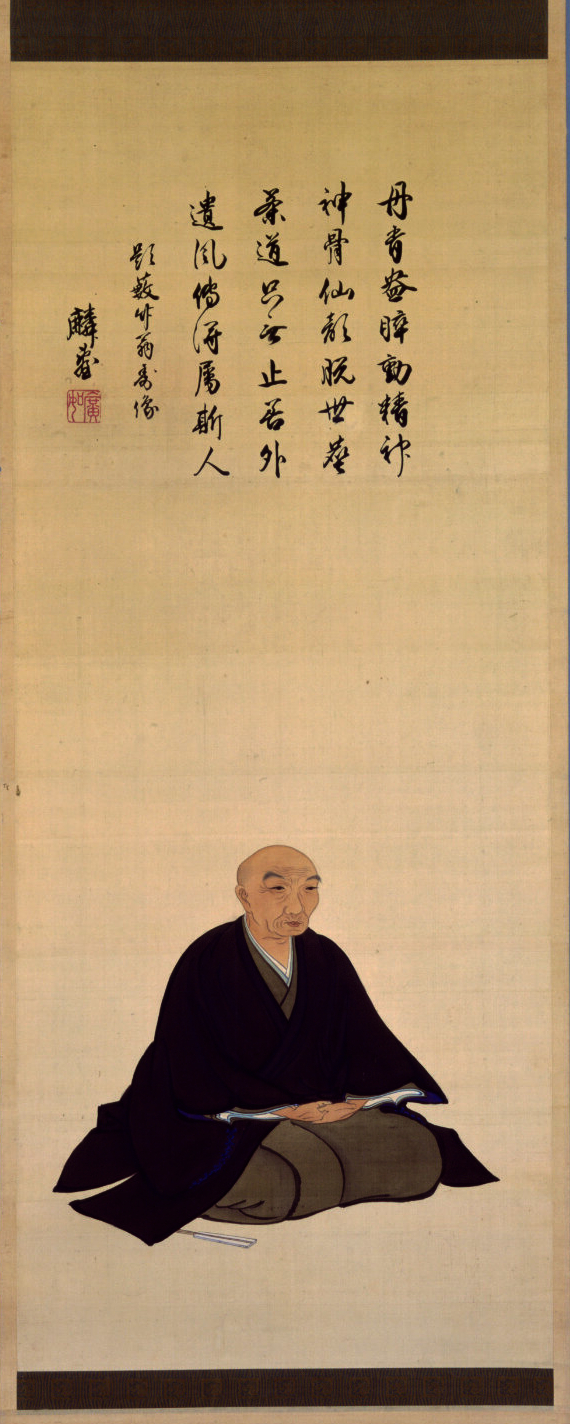 丹青盎睟動精神
神骨仙顔脱世塵
茶道只無止善外
遺風傳得属斯人
題薮竹翁寿像
麟